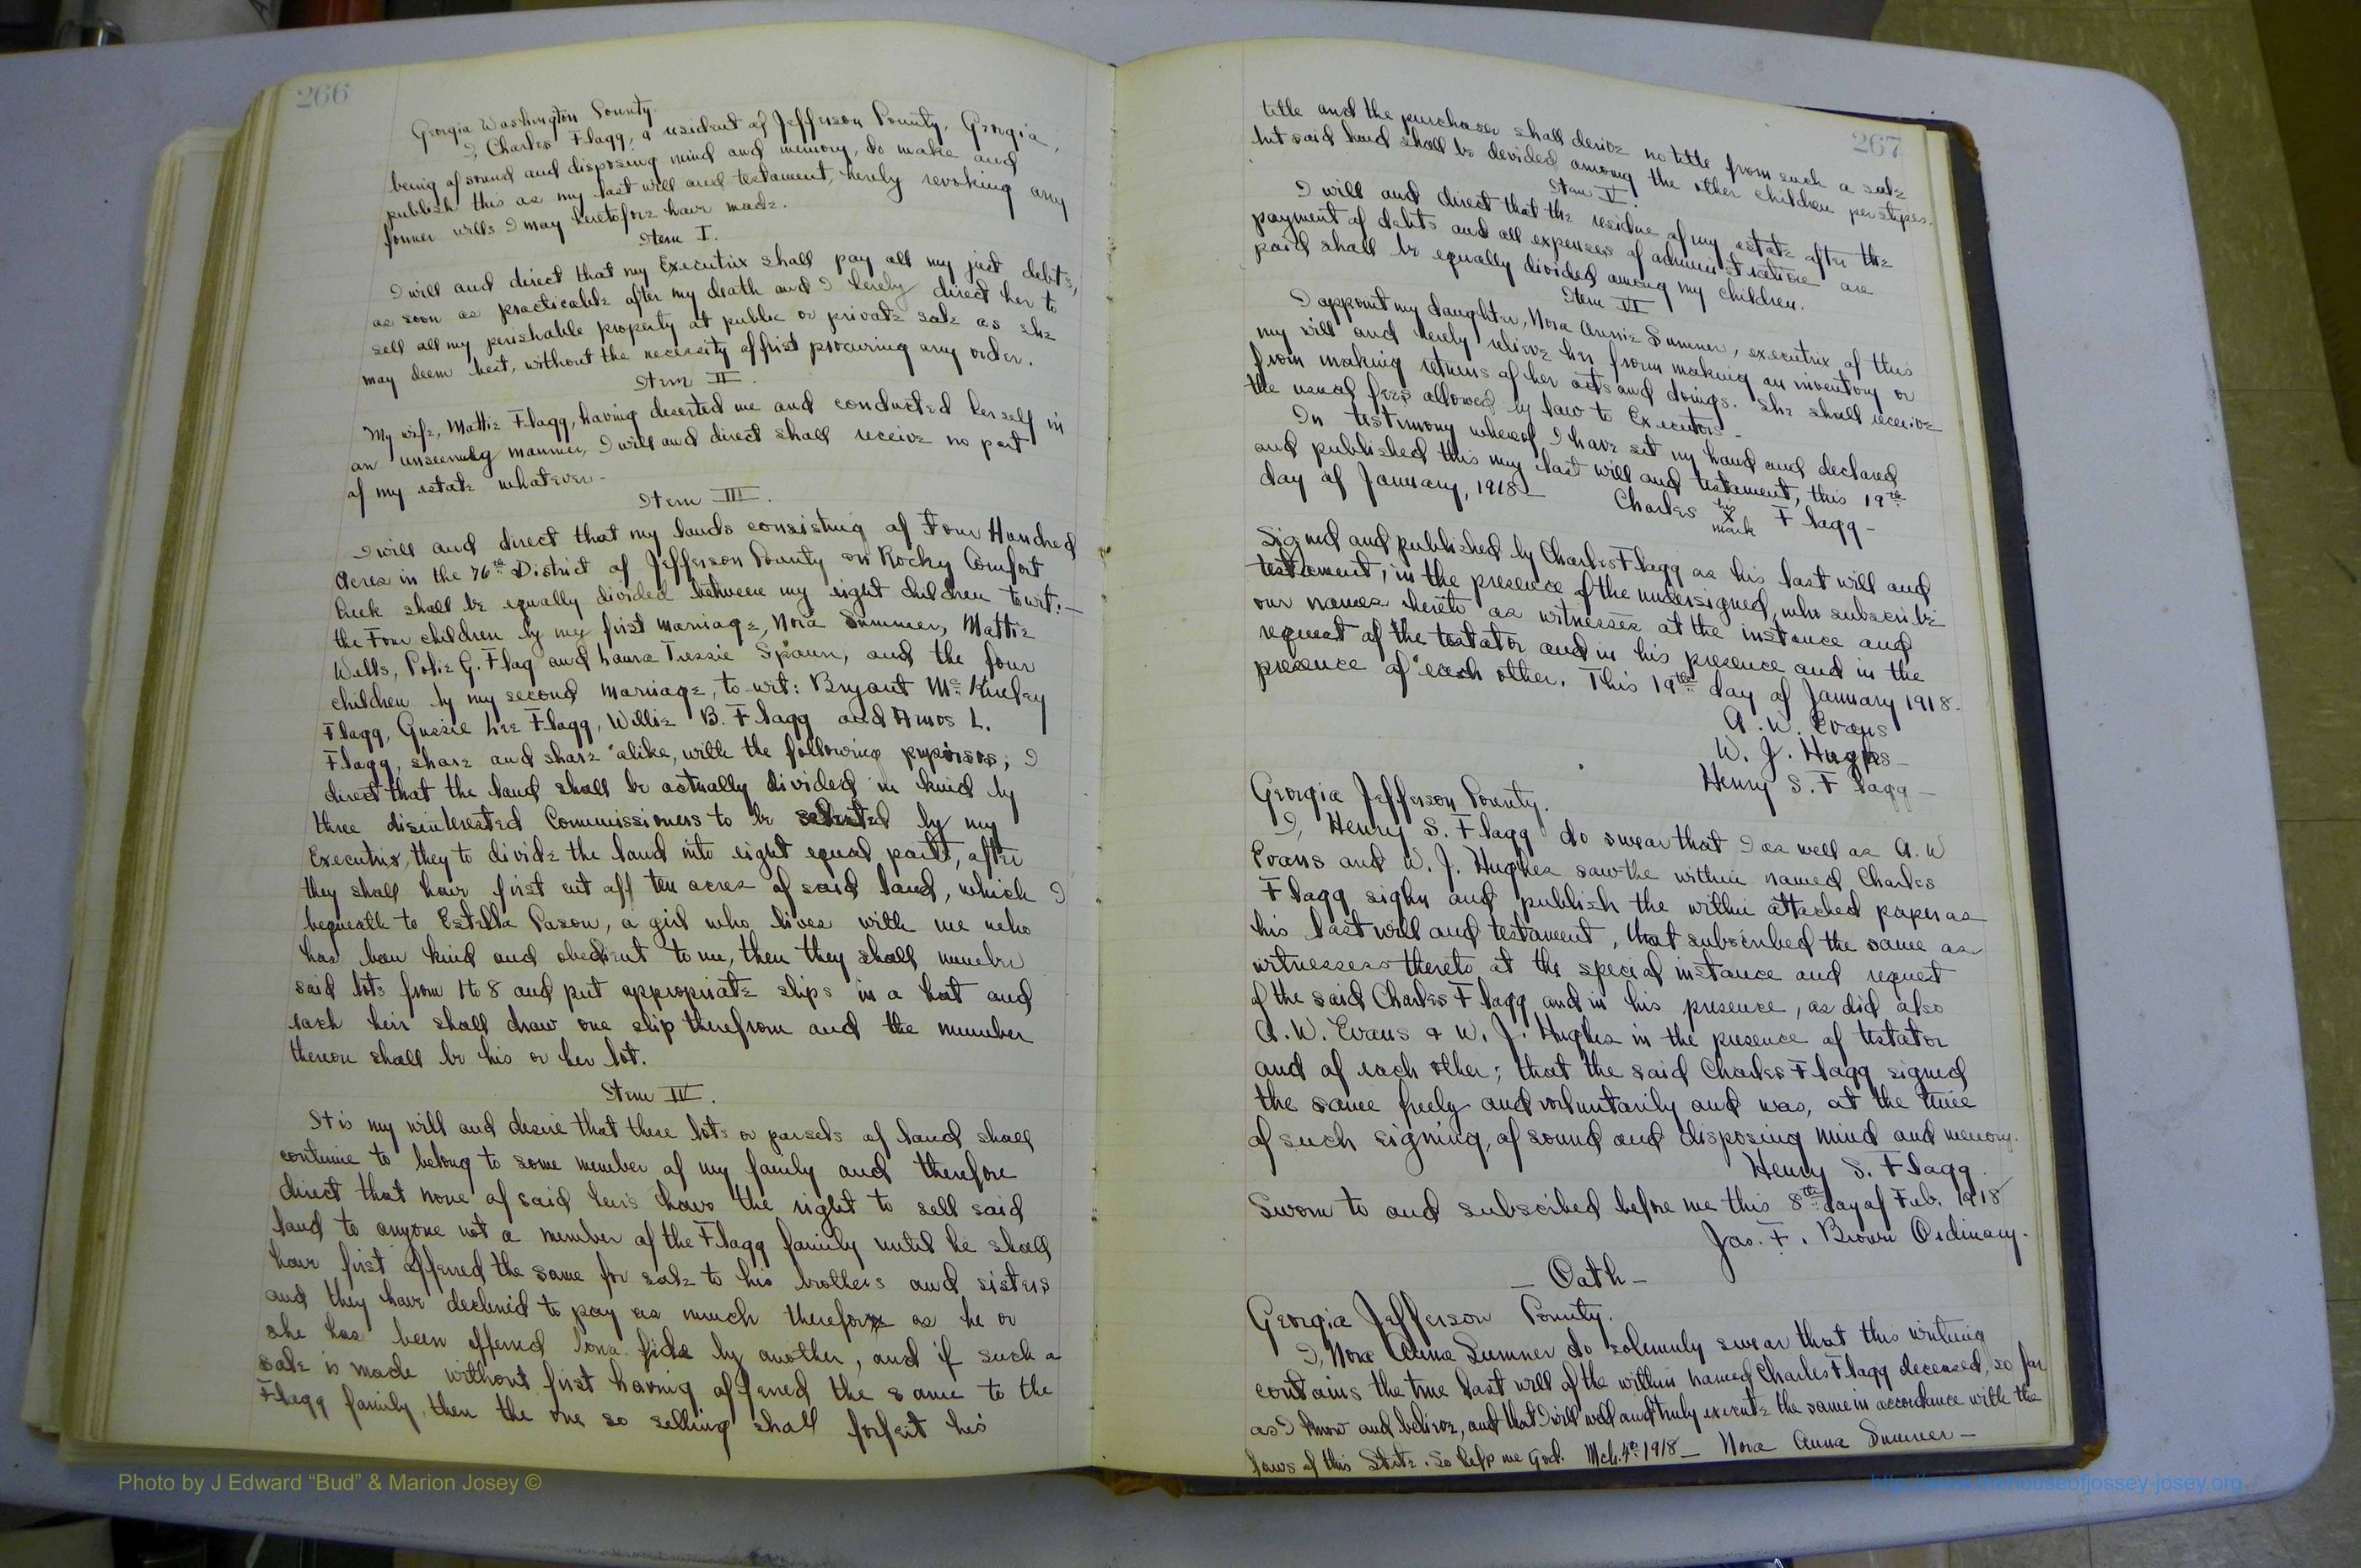 266
Georgia Washington County.
I, Charles Flagg, a resident of Jefferson County, Georgia,
being of sound and disposing mind and memory, do make and
publish this as my last will and testament, hereby revoking any
former wills I may heretofore have made.
Item I.
I will and direct that my Executrix shall pay all my just debts,
as soon as practicable after my death and I hereby direct her to
sell all my perishable property at public or private sale as she
may deem best, without the necessity of first procuring any order.
Item II.
My wife, Mattie Flagg, having deserted me and conducted herself in
an unseemly manner, I will and direct shall receive no part
of my estate whatever-
Item III.
I will and direct that my lands consisting of Four Hundred
Acres in the 76th District of Jefferson County on Rocky Comfort
Creek shall be equally divided between my eight children to wit:-
the Four children by my first marriage, Nora Sumner, Mattie
Wells, Polie G. Flag and Laura Tressie Spann, and the four
children by my second marriage, to-wit: Bryant Mc
Flagg, Gussie Lee Flagg, Willie B. Flagg and Amos L.
Flagg, share and share alike, with the following ; I
direct that the land shall be actually divided in kind by
three disinterested Commissioners to be selected by my
Executrix, they to divide the land into eight equal parts, after
they shall have first cut off ten acres of said land, which I
bequeath to Estella Cason, a girl who lives with me who
has been kind and obedient to me, then they shall number
said lots from 1 to 8 and put appropriate slips in a hat and
each heir shall draw one slip therefrom and the number
thereon shall be his or her lot.
Item IV.
It is my will and desire that these lots or parsels of land shall
continue to belong to some member of my family and therefore
direct that none of said heirs have the right to sell said
land to anyone not a member of the Flagg family until he shall
have first offered the same for sale to his brothers and sisters
and they have declined to pay as much therefor as he or
she has been offered bona fide by another, and if such a
sale is made without first having offered the same to the
Flagg family, then the one so selling shall forfeit his
267
title and the purchaser shall derive no title from such a sale
but said land shall be devided among the other children per stipes.
Item V.
I will and direct that the residue of my estate after the
payment of debts and all expenses of administration are
paid shall be equally divided among my children.
Item VI
I appoint my daughter, Nora Annie Sumner, executrix of this
my will and hereby relieve her from making an inventory or
from making returns of her acts and doings. She shall receive
the usual fees allowed by law to Executors-
In testimony whereof I have set my hand and declared
and published this my last will and testament, this 19th
day of January, 1918-
Charles his X mark Flagg-
Signed and published by Charles Flagg as his last will and
testament, in the presence of the undersigned, who subscribe
our names hereto as witnesses at the instance and
request of the testator and in his presence and in the
presence of each other. This 19th day of January 1918.
A. W. Evans
W. J. Hughes-
Henry S. Flagg-
Georgia Jefferson County.
I, Henry S. Flagg do swear that I as well as A. W
Evans and W. J. Hughes saw the within named Charles
Flagg sighn and publish the within attached paper as
his last will and testament, that subscribed the same as
witnesses thereto at the special instance and request
of the said Charles Flagg and in his presence, as did also
A. W. Evans & W. J. Hughes in the presence of testator
and of each other; that the said Charles Flagg signed
the same freely and voluntarily and was, at the time
of such signing, of sound and disposing mind and memory.
Henry S. Flagg.
Sworn to and subscribed before me this 8th day of Feb. 1918
Jas. F. Brown Ordinary.
- Oath -
Georgia Jefferson County.
I, Nora Anna Sumner do solemnly swear that this writing
contains the true last will of the within named Charles Flagg deceased, so far
as I know and believe, and that I will well and truly execute the same in accordance with the
laws of this State. So help me God. Mch. 4th 1918- Nora Anna Sumner-
Photo by J Edward “Bud” & Marion Josey ©
http://www.thehouseofjossey-josey.org